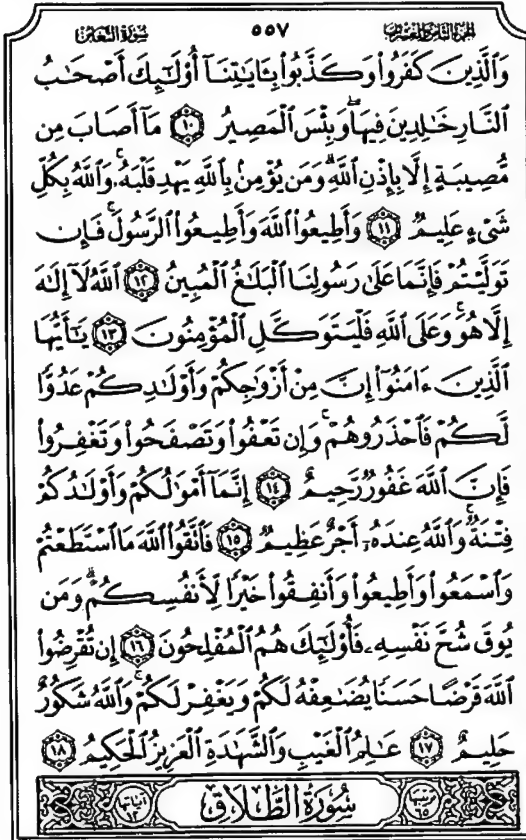 الجزء الثامن والعشرون ٥٥٧ سورة التغابن
وَالَّذِينَ كَفَرُوا وَكَذَّبُوا بِـَٔايَـٰتِنَآ أُو۟لَـٰٓئِكَ أَصْحَـٰبُ
النَّارِ خَـٰلِدِينَ فِيهَا ۖ وَبِئْسَ الْمَصِيرُ ١٠ مَآ أَصَابَ مِن
مُّصِيبَةٍ إِلَّا بِإِذْنِ اللَّهِ ۗ وَمَن يُؤْمِنۢ بِاللَّهِ يَهْدِ قَلْبَهُۥ ۚ وَاللَّهُ بِكُلِّ
شَىْءٍ عَلِيمٌ ١١ وَأَطِيعُوا اللَّهَ وَأَطِيعُوا الرَّسُولَ ۚ فَإِن
تَوَلَّيْتُمْ فَإِنَّمَا عَلَىٰ رَسُولِنَا الْبَلَـٰغُ الْمُبِينُ ١٢ اللَّهُ لَآ إِلَـٰهَ
إِلَّا هُوَ ۚ وَعَلَى اللَّهِ فَلْيَتَوَكَّلِ الْمُؤْمِنُونَ ١٣ يَـٰٓأَيُّهَا
الَّذِينَ ءَامَنُوٓا إِنَّ مِنْ أَزْوَٰجِكُمْ وَأَوْلَـٰدِكُمْ عَدُوًّا
لَّكُمْ فَاحْذَرُوهُمْ ۚ وَإِن تَعْفُوا وَتَصْفَحُوا وَتَغْفِرُوا
فَإِنَّ اللَّهَ غَفُورٌ رَّحِيمٌ ١٤ إِنَّمَآ أَمْوَٰلُكُمْ وَأَوْلَـٰدُكُمْ
فِتْنَةٌ ۚ وَاللَّهُ عِندَهُۥٓ أَجْرٌ عَظِيمٌ ١٥ فَاتَّقُوا اللَّهَ مَا اسْتَطَعْتُمْ
وَاسْمَعُوا وَأَطِيعُوا وَأَنفِقُوا خَيْرًا لِّأَنفُسِكُمْ ۗ وَمَن
يُوقَ شُحَّ نَفْسِهِۦ فَأُو۟لَـٰٓئِكَ هُمُ الْمُفْلِحُونَ ١٦ إِن تُقْرِضُوا
اللَّهَ قَرْضًا حَسَنًا يُضَـٰعِفْهُ لَكُمْ وَيَغْفِرْ لَكُمْ ۚ وَاللَّهُ شَكُورٌ
حَلِيمٌ ١٧ عَـٰلِمُ الْغَيْبِ وَالشَّهَـٰدَةِ الْعَزِيزُ الْحَكِيمُ ١٨
ترتيبها ٦٥ سُورَةُ الطَّلَاقِ آياتها ١٢